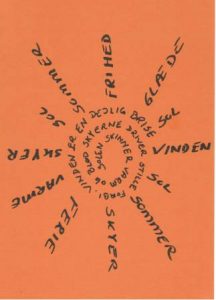 FRIHED
GLÆDE
SOL
VINDEN
SOL
SOMMER
SKYER
FERIE
VARME
SKYER
SOL
SOMMER
VINDEN ER EN DEJLIG BRISE
SKYERNE DRIVER STILLE FORBI.
SOLEN SKINNER VARM OG BLØD